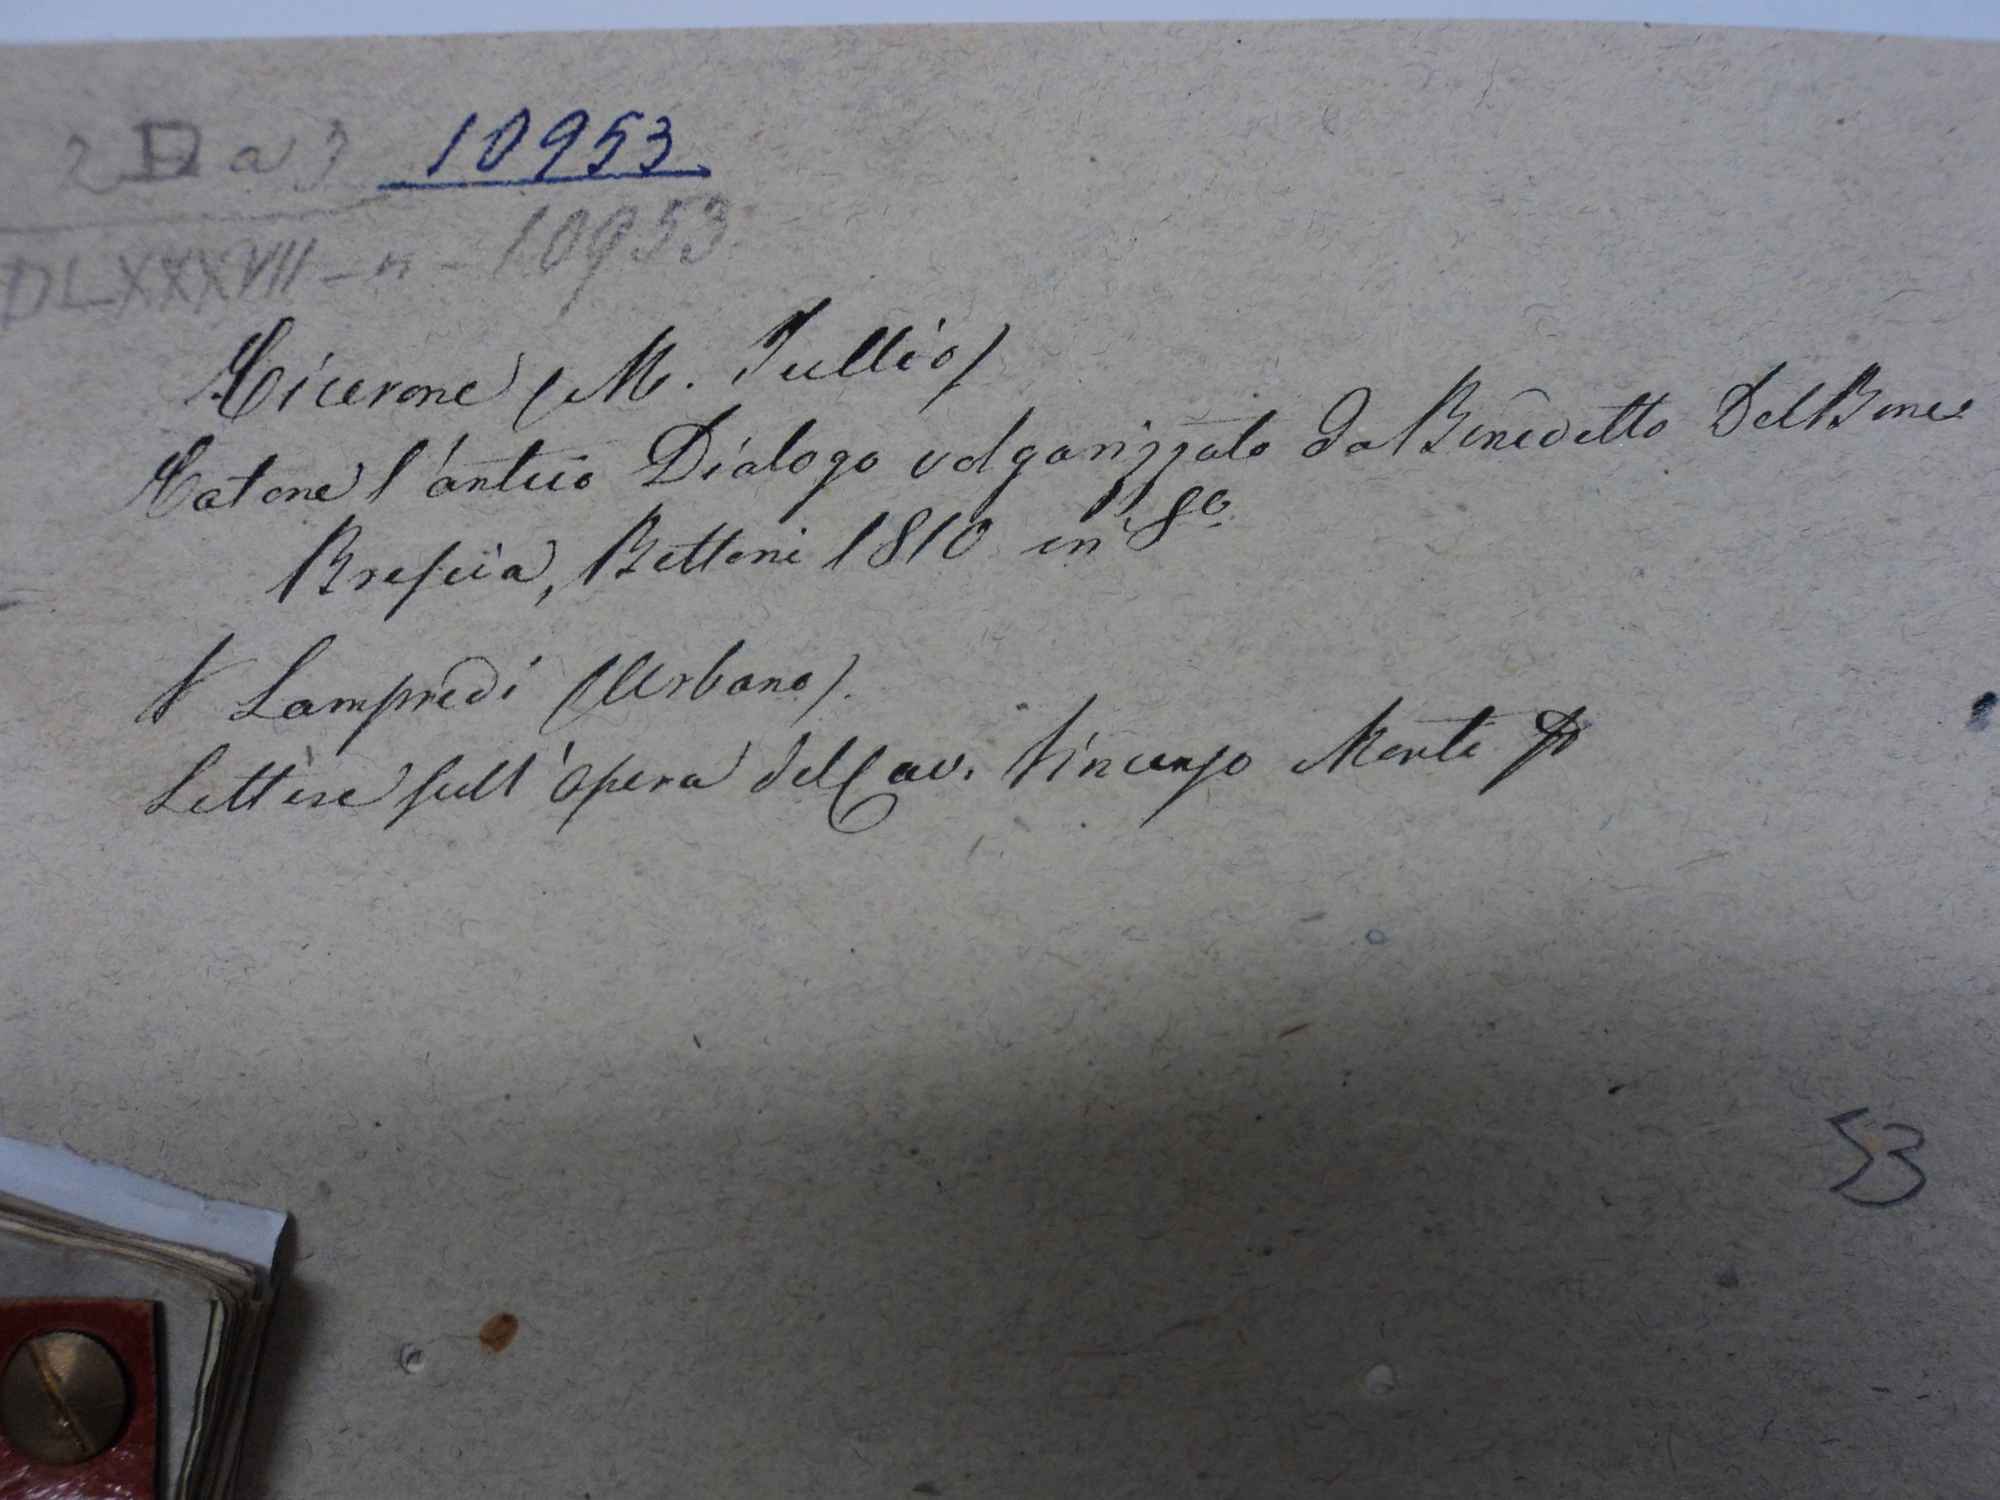 2 a 3 10953
DLXXXVII - n - 10953
Cicerone (M. Tullio)
Catone l'antico Dialogo volgarizzato da Benedetto Del Bene
Brescia, Bettoni 1810 in 8o
V Lampredi (Urbano).
Lettere sull'opera del Cav. Vincenzo Monti
53